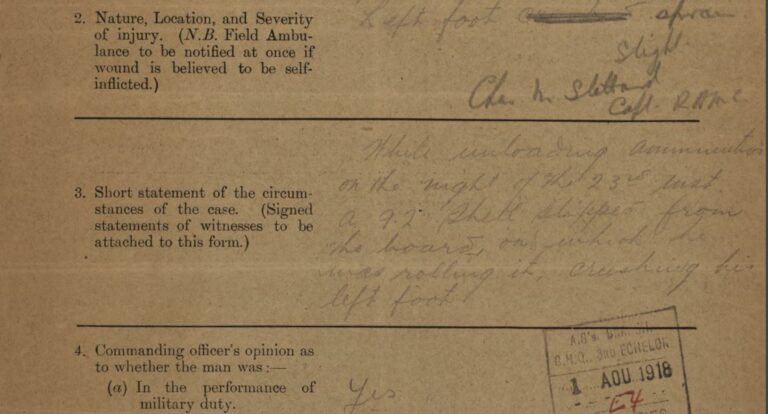 2. Nature, Location, and Severity
of injury. (N.B. Field Ambu-
lance to be notified at once if
wound is believed to be self-
inflicted.)
Left foot sprain
Slight.
Capt. RAMC
3. Short statement of the circum-
stances of the case. (Signed
statements of witnesses to be
attached to this form.)
While unloading ammunition
on the night of the 23rd inst.
a 9.2" shell slipped from
the board, on which he
was rolling it, crushing his
left foot
4. Commanding officer's opinion as
to whether the man was:—
(a) In the performance of
military duty.
Yes
G.H.Q. 3RD ECHELON
1 AOU 1918